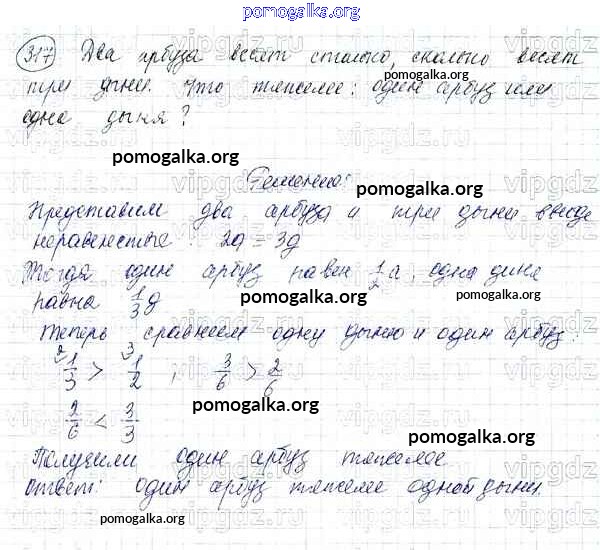 pomogalka.org
317 Два арбуза весят столько, сколько весят
pomogalka.org
три дыни. Что тяжелее: один арбуз или
одна дыня?
pomogalka.org
Решение:
pomogalka.org
Представим два арбуза и три дыни ввиде
неравенства: 2а = 3д
Тогда один арбуз равен 1/2 а, одна дыня
pomogalka.org pomogalka.org
равна 1/3 д
Теперь сравнием одну дыню и один арбуз:
2 1/3 > 3 1/2 ; 3/6 > 2/6
2/6 < 3/3
pomogalka.org
pomogalka.org
Получили один арбуз тяжелее
Ответ: один арбуз тяжелее одной дыни.
pomogalka.org